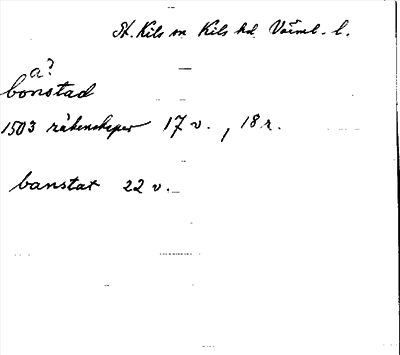 St. Kils sn Kils hd. Värml. l.
a?
bonstad
1503 räkenskaper 17 v., 18 r.
banstat 22 v.